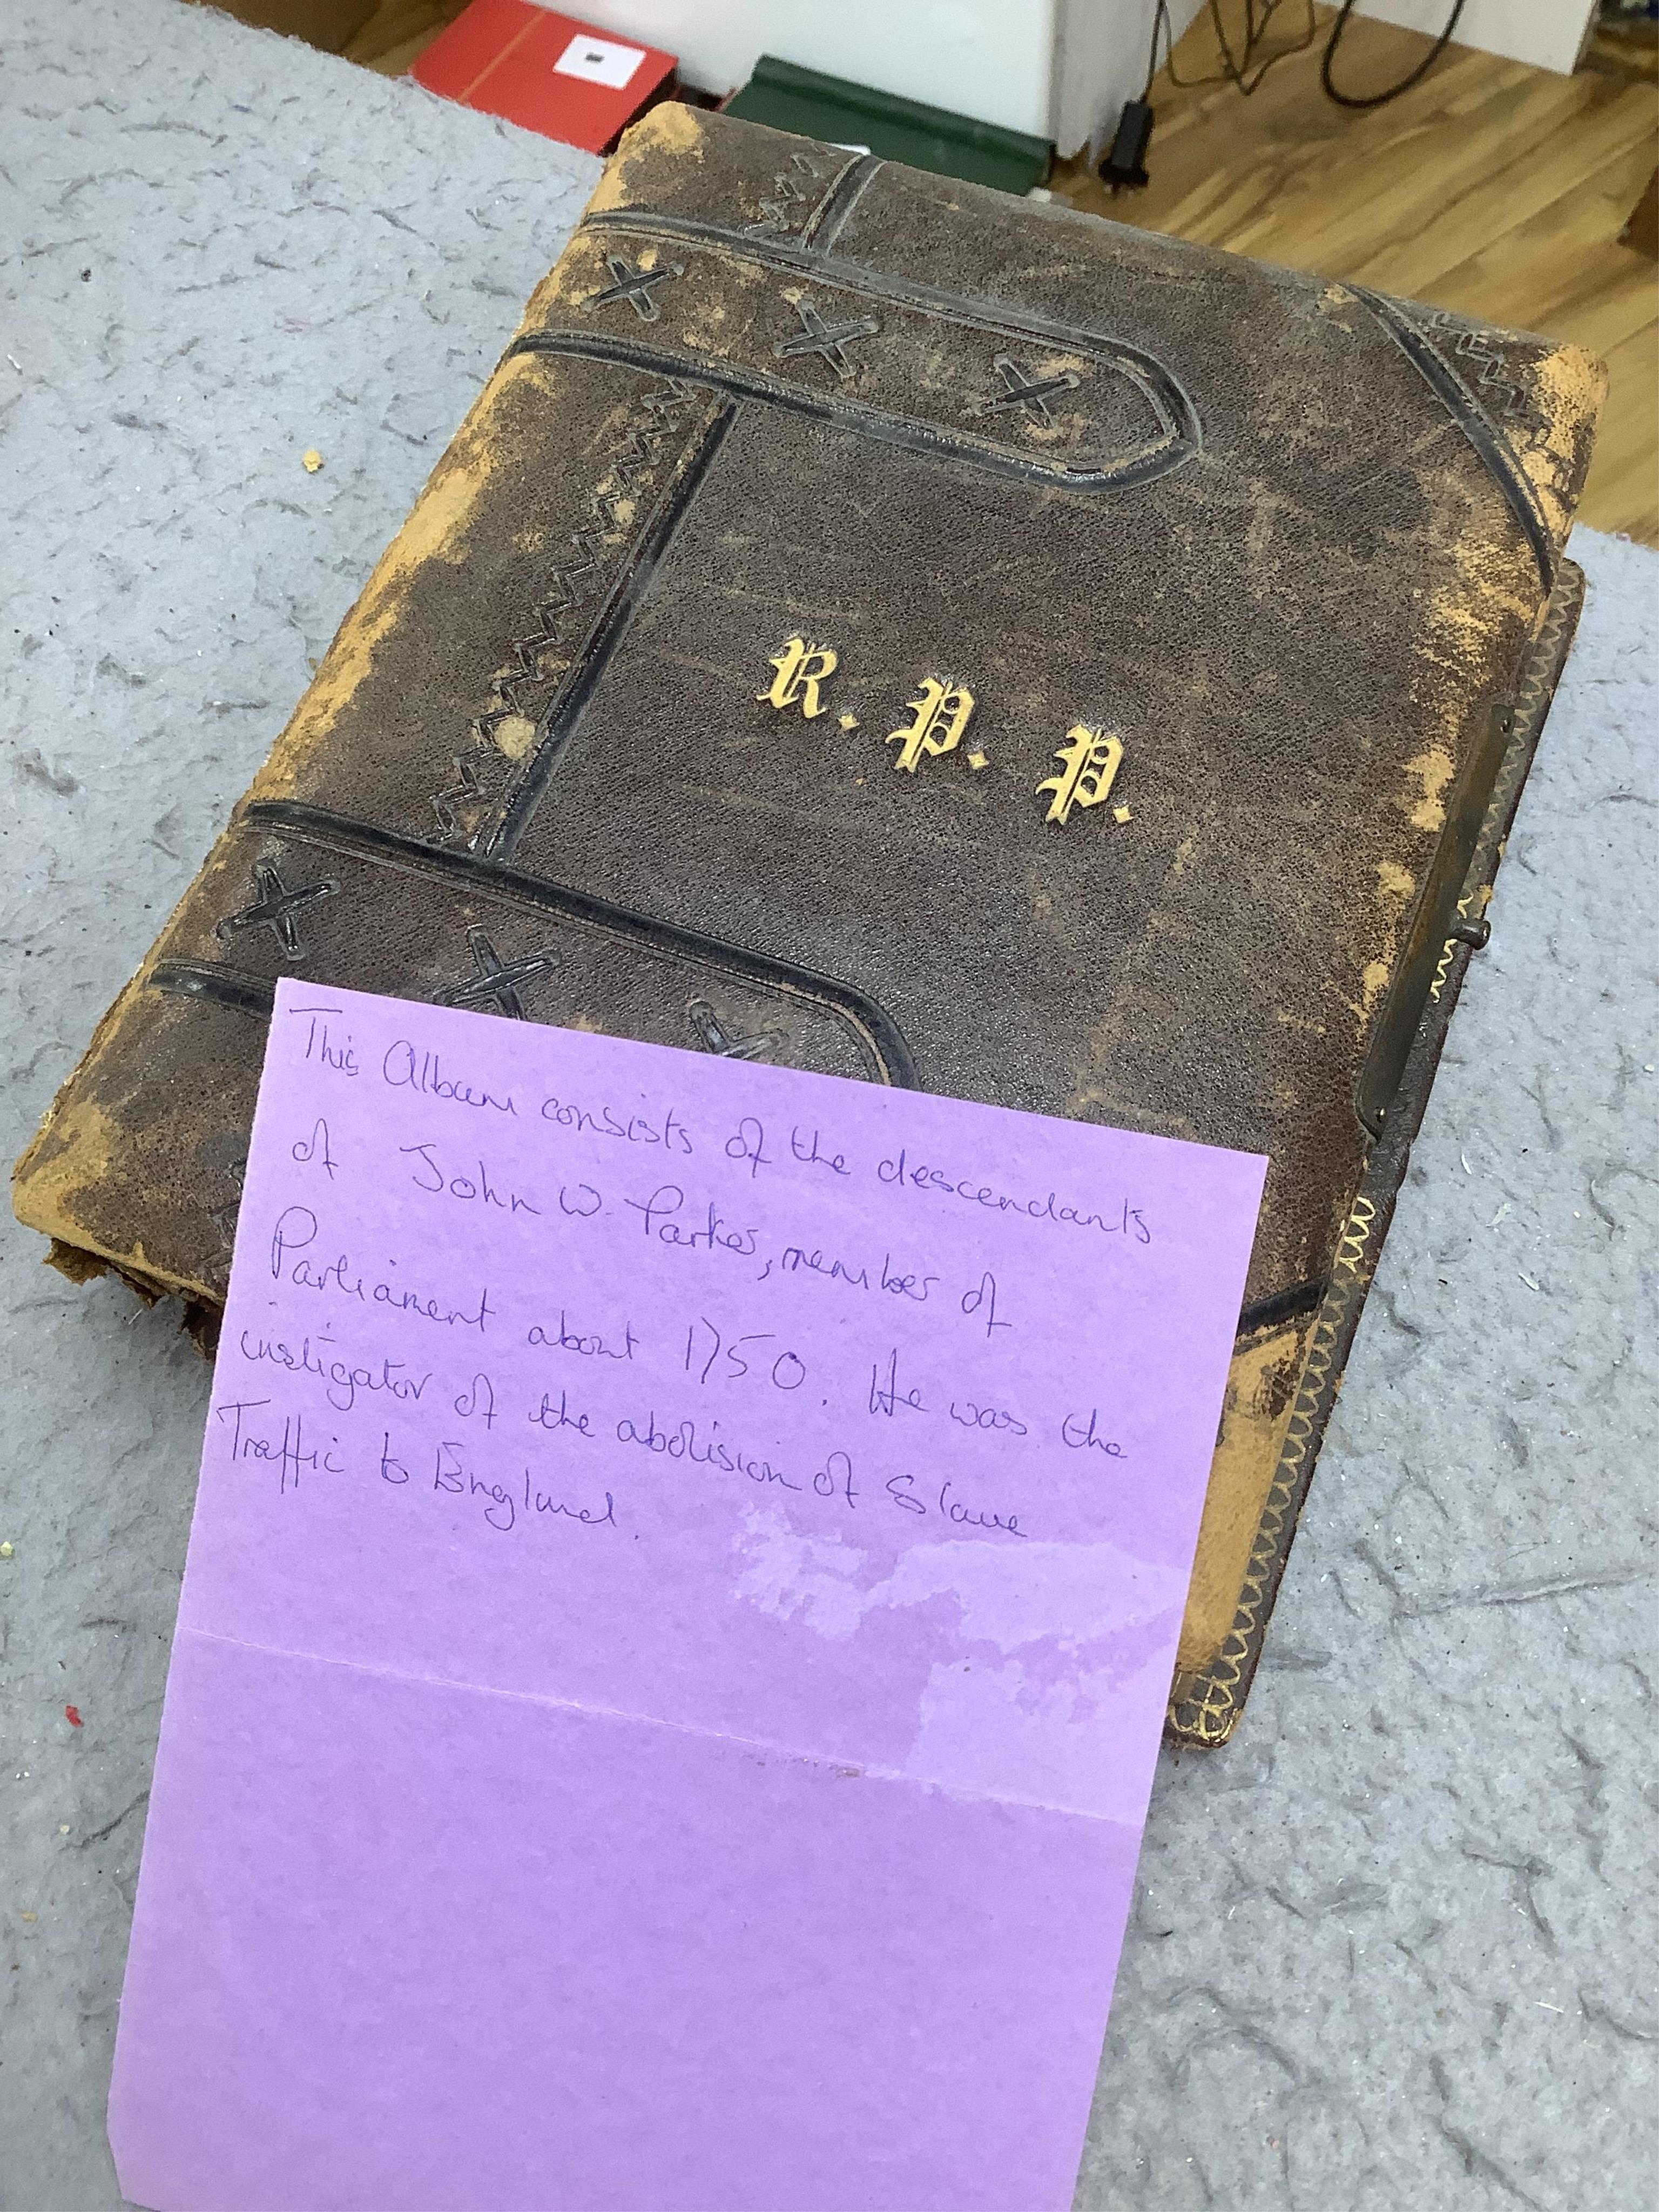 R. P. P.
This Album consists of the descendants
of John W. Parker, member of
Parliament about 1750. He was the
instigator of the abolision of Slave
Traffic to England.